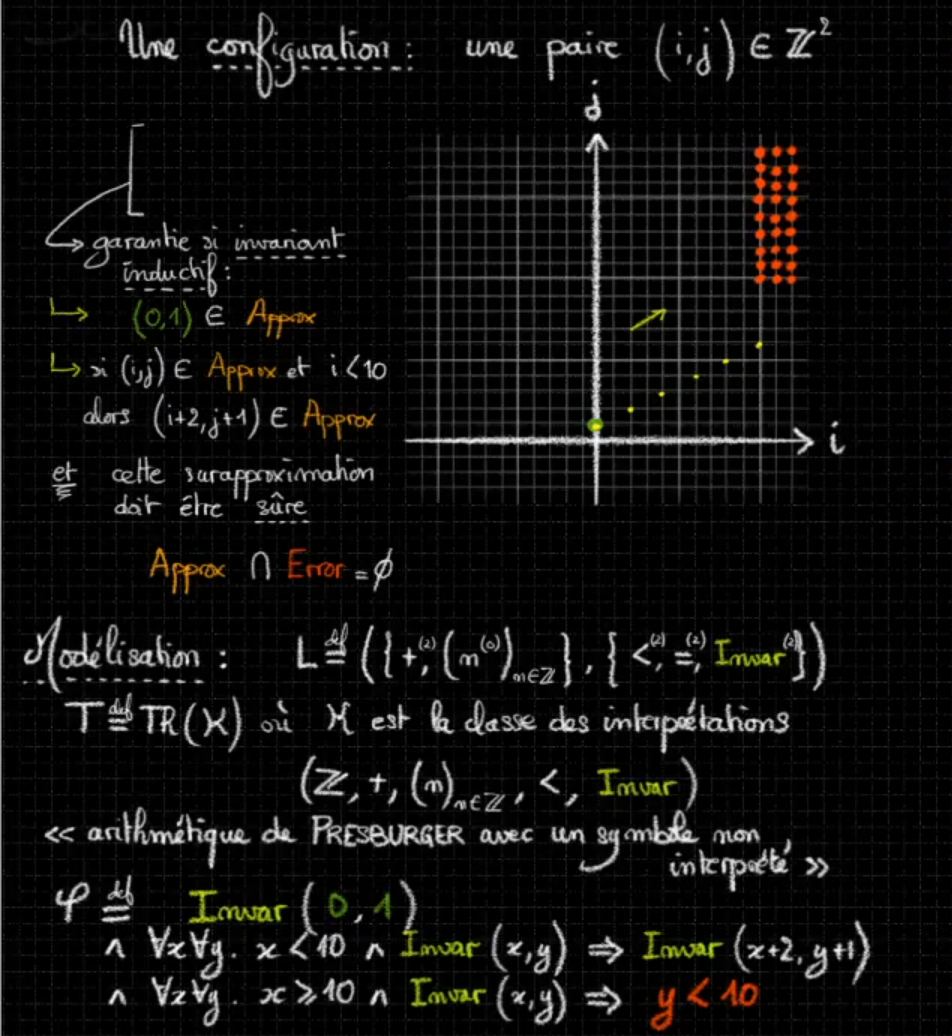 Une configuration : une paire (i,j) ∈ ℤ²
j
i
garantie si invariant
inductif :
(0,1) ∈ Approx
si (i,j) ∈ Approx et i < 10
alors (i+2, j+1) ∈ Approx
et cette surapproximation
doit être sûre
Approx ∩ Error = ∅
Modélisation : L ≝ ({+⁽²⁾, (n⁽⁰⁾)n∈ℤ}, {<⁽²⁾, =⁽²⁾, Invar⁽²⁾})
T ≝ TR(K) où K est la classe des interprétations
(ℤ, +, (n)n∈ℤ, <, Invar)
<< arithmétique de PRESBURGER avec un symbole non
interprété >>
φ ≝ Invar (0, 1)
∧ ∀x∀y. x < 10 ∧ Invar (x,y) ⇒ Invar (x+2, y+1)
∧ ∀x∀y. x ⩾ 10 ∧ Invar (x,y) ⇒ y < 10